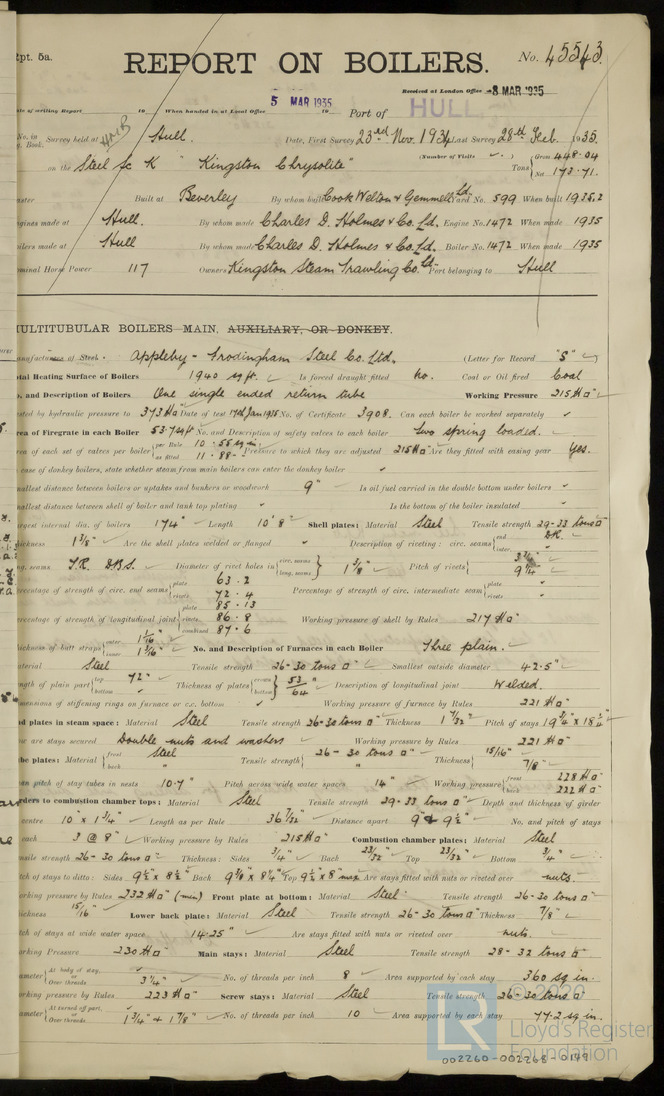 Rpt. 5a.
REPORT ON BOILERS.
No. 45543.
Received at London Office 8 MAR 1935
Date of writing Report 19 When handed in at Local Office 5 MAR 1935 19 Port of HULL
No. in Survey held at Hull. Date, First Survey 23rd Nov. 1934 Last Survey 28th Feb. 1935.
Book. (Number of Visits ) Gross 448.04
on the Steel sc K "Kingston Chrysolite" Tons Net 173.71.
Master Built at Beverley By whom built Cook Welton & Gemmell Ld. Yard No. 599 When built 1935.2
Engines made at Hull. By whom made Charles D. Holmes & Co. Ld. Engine No. 1472 When made 1935
Boilers made at Hull By whom made Charles D. Holmes & Co. Ld. Boiler No. 1472 When made 1935
Nominal Horse Power 117 Owners Kingston Steam Trawling Co. Ld. Port belonging to Hull
MULTITUBULAR BOILERS MAIN, AUXILIARY, OR DONKEY.
Manufacturers of Steel. Appleby-Frodingham Steel Co. Ltd. (Letter for Record "S")
Total Heating Surface of Boilers 1940 sq ft. Is forced draught fitted No. Coal or Oil fired Coal
No. and Description of Boilers One single ended return tube Working Pressure 215
Tested by hydraulic pressure to 373 Date of test 17th Jan 1935 No. of Certificate 3908. Can each boiler be worked separately
Area of Firegrate in each Boiler 53.7 sq ft No. and Description of safety valves to each boiler two spring loaded.
Area of each set of valves per boiler per Rule 10.55 sq in. as fitted 11.88 Pressure to which they are adjusted 215 Are they fitted with easing gear Yes.
In case of donkey boilers, state whether steam from main boilers can enter the donkey boiler
Smallest distance between boilers or uptakes and bunkers or woodwork 9" Is oil fuel carried in the double bottom under boilers
Smallest distance between shell of boiler and tank top plating Is the bottom of the boiler insulated
Largest internal dia. of boilers 174" Length 10' 8" Shell plates: Material Steel Tensile strength 29-33 tons
Thickness 1 3/8" Are the shell plates welded or flanged Description of riveting: circ. seams end D.R. inter.
long. seams T.R. D.B.S. Diameter of rivet holes in circ. seams long. seams 1 3/8" Pitch of rivets 9 1/4"
Percentage of strength of circ. end seams plate 63.2 rivets 72.4 Percentage of strength of circ. intermediate seam plate rivets
Percentage of strength of longitudinal joint plate 85.13 rivets 86.8 combined 87.6 Working pressure of shell by Rules 217
Thickness of butt straps outer 1 1/16" inner 1 3/16" No. and Description of Furnaces in each Boiler Three plain.
Material Steel Tensile strength 26-30 tons Smallest outside diameter 42.5"
Length of plain part top 72" bottom Thickness of plates crown bottom 53/64" Description of longitudinal joint Welded.
Dimensions of stiffening rings on furnace or c.c. bottom Working pressure of furnace by Rules 221
End plates in steam space: Material Steel Tensile strength 26-30 tons Thickness 1 7/32" Pitch of stays 19 3/4" x 18 1/4"
How are stays secured Double nuts and washers Working pressure by Rules 221
Tube plates: Material front Steel back " Tensile strength 26-30 tons " Thickness 15/16" 7/8"
Mean pitch of stay tubes in nests 10.7 Pitch across wide water spaces 14" Working pressure front 228 back 222
Girders to combustion chamber tops: Material Steel Tensile strength 29-33 tons Depth and thickness of girder
centre 10" x 1 3/4" Length as per Rule 36 7/32" Distance apart 9" & 9 1/2" No. and pitch of stays
each 3 @ 8" Working pressure by Rules 215 Combustion chamber plates: Material Steel
Tensile strength 26-30 tons Thickness: Sides 3/4" Back 23/32" Top 23/32" Bottom 3/4"
Pitch of stays to ditto: Sides 9 1/2" x 8 1/2" Back 9 3/8" x 8 1/4" Top 9 1/2" x 8" max Are stays fitted with nuts or riveted over nuts.
Working pressure by Rules 232 (min) Front plate at bottom: Material Steel Tensile strength 26-30 tons
Thickness 15/16" Lower back plate: Material Steel Tensile strength 26-30 tons Thickness 7/8"
Pitch of stays at wide water space 14.25" Are stays fitted with nuts or riveted over nuts.
Working Pressure 230 Main stays: Material Steel Tensile strength 28-32 tons
Diameter At body of stay, or Over threads 3 1/4" No. of threads per inch 8 Area supported by each stay 360 sq in.
Working pressure by Rules 223 Screw stays: Material Steel Tensile strength 26-30 tons
Diameter At turned off part, or Over threads 1 3/4" & 1 7/8" No. of threads per inch 10 Area supported by each stay 77.2 sq in.
© 2020
LR
Lloyd's Register
Foundation
002260-002268-0149